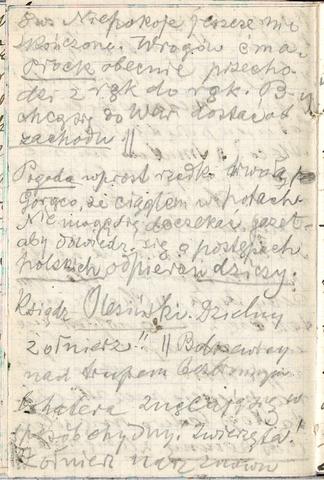 Niepokoje jeszcze nie
skończone. Wrogów ćma
Płock obecnie przecho-
dzi z rąk do rąk. B-cy
chcą się do War. dostać od
zachodu !!
Pogoda wprost rzadko trwała,
gorąco, że ciągle w potach.
Nie mogę się doczekać gazet
aby dowiedz. się o postępach
polskich odpieran dziczy.
Ksiądz Olesiński. Dzielny
żołnierz!! !! Bolszewicy
nad trupem
bohatera znęcają się w
sposób ohydny. Zwierzęta!
Żołnierz nasz znowu